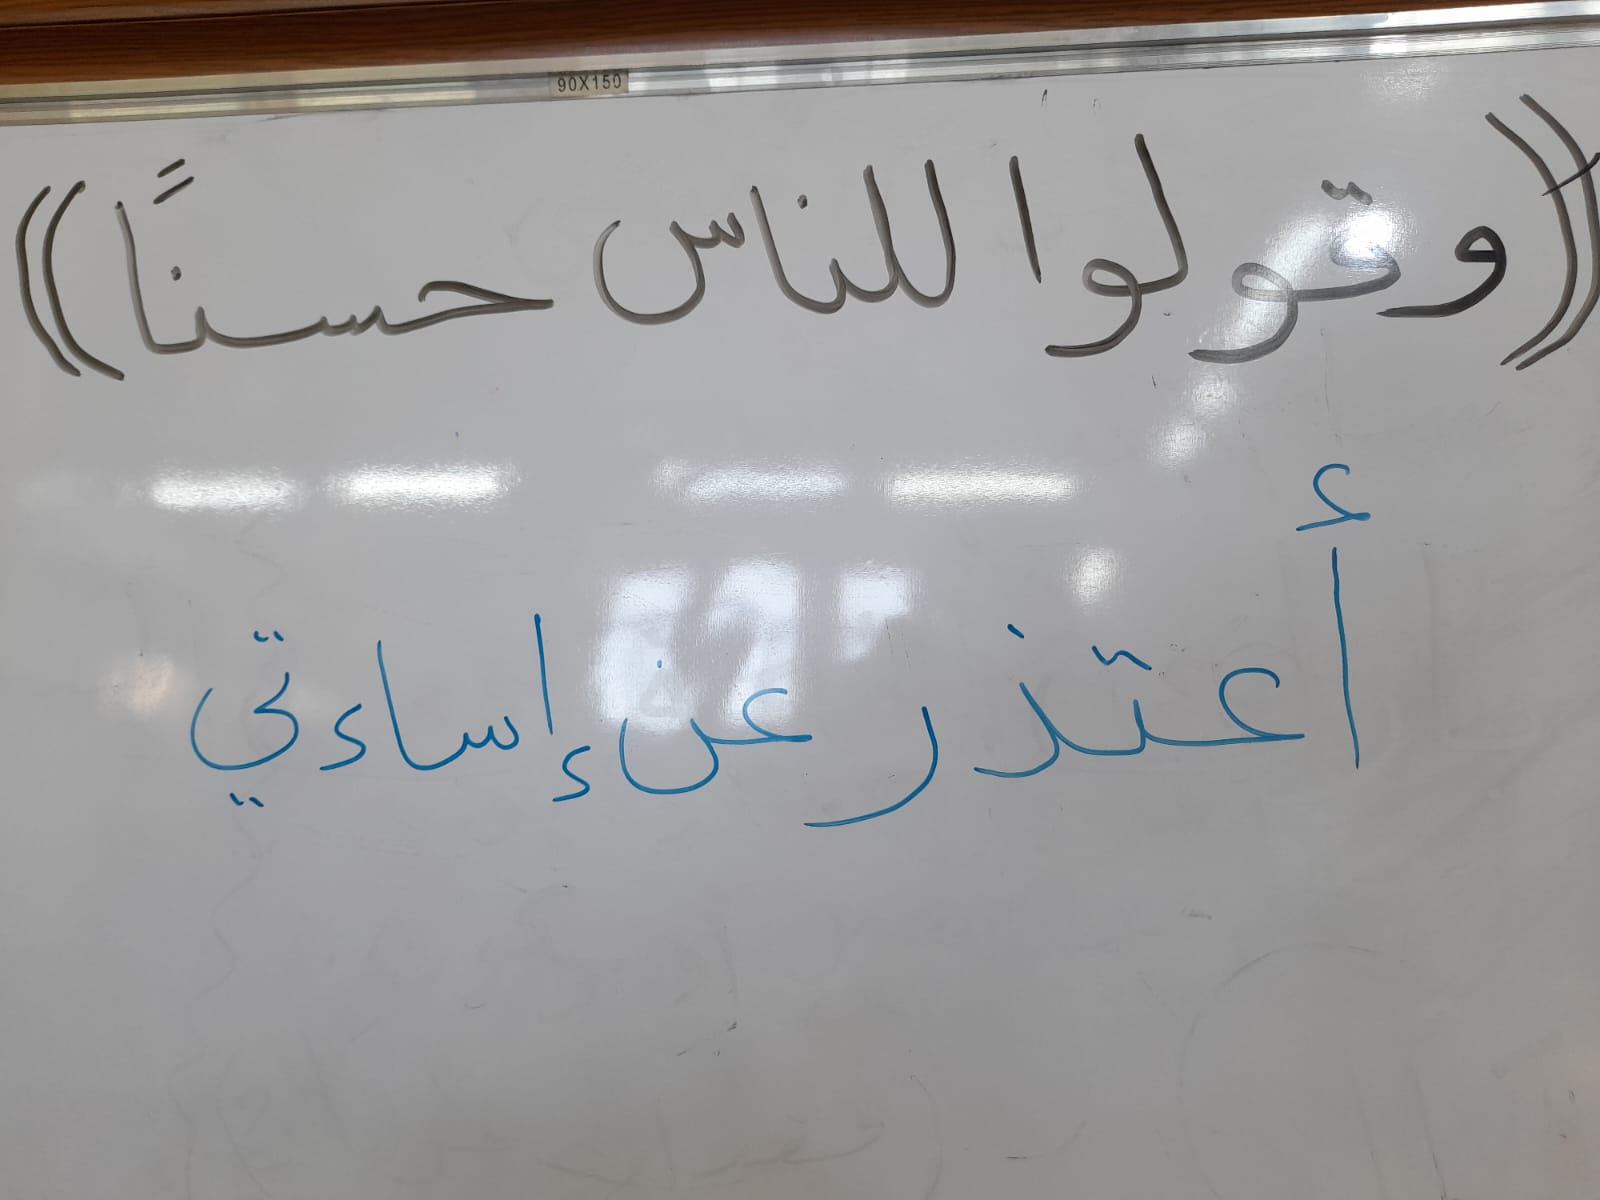 90X150
((وقولوا للناس حسنًا))
أعتذر عن إساءتي